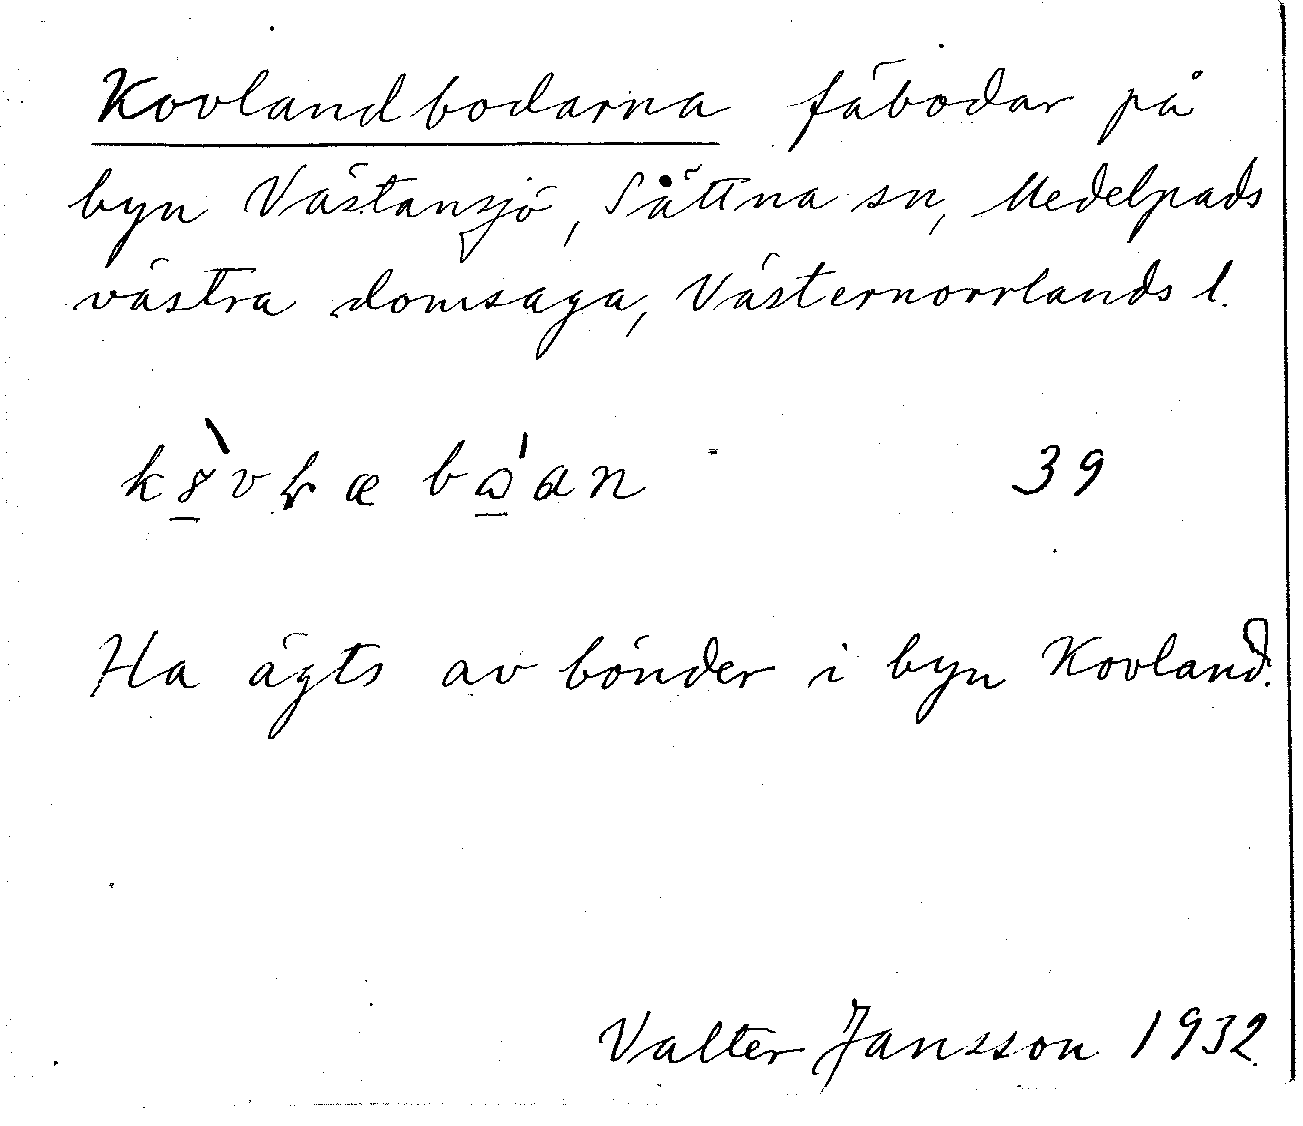 Kovlandbodarna fäbodar på
byn Västansjö, Sättna sn, Medelpads
västra domsaga, Västernorrlands l.
39
Ha ägts av bönder i byn Kovland.
Valter Jansson 1932.